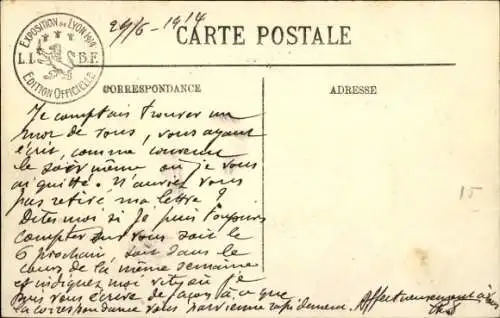 29/6 - 1914
EXPOSITION DE LYON 1914
L.L. B.F.
EDITION OFFICIELLE
CARTE POSTALE
CORRESPONDANCE
ADRESSE
Je comptais trouver un
mot de vous, vous ayant
écrit, comme convenu
le soir même où je vous
ai quitté. N'auriez vous
pas retiré ma lettre ?
Dites moi si je puis toujours
compter sur vous soit le
6 prochain, soit dans le
cours de la même semaine
et indiquez moi vite où je
puis vous écrire de façon à ce que
la correspondance vous parvienne rapidement.
Affectueusement à vous
15